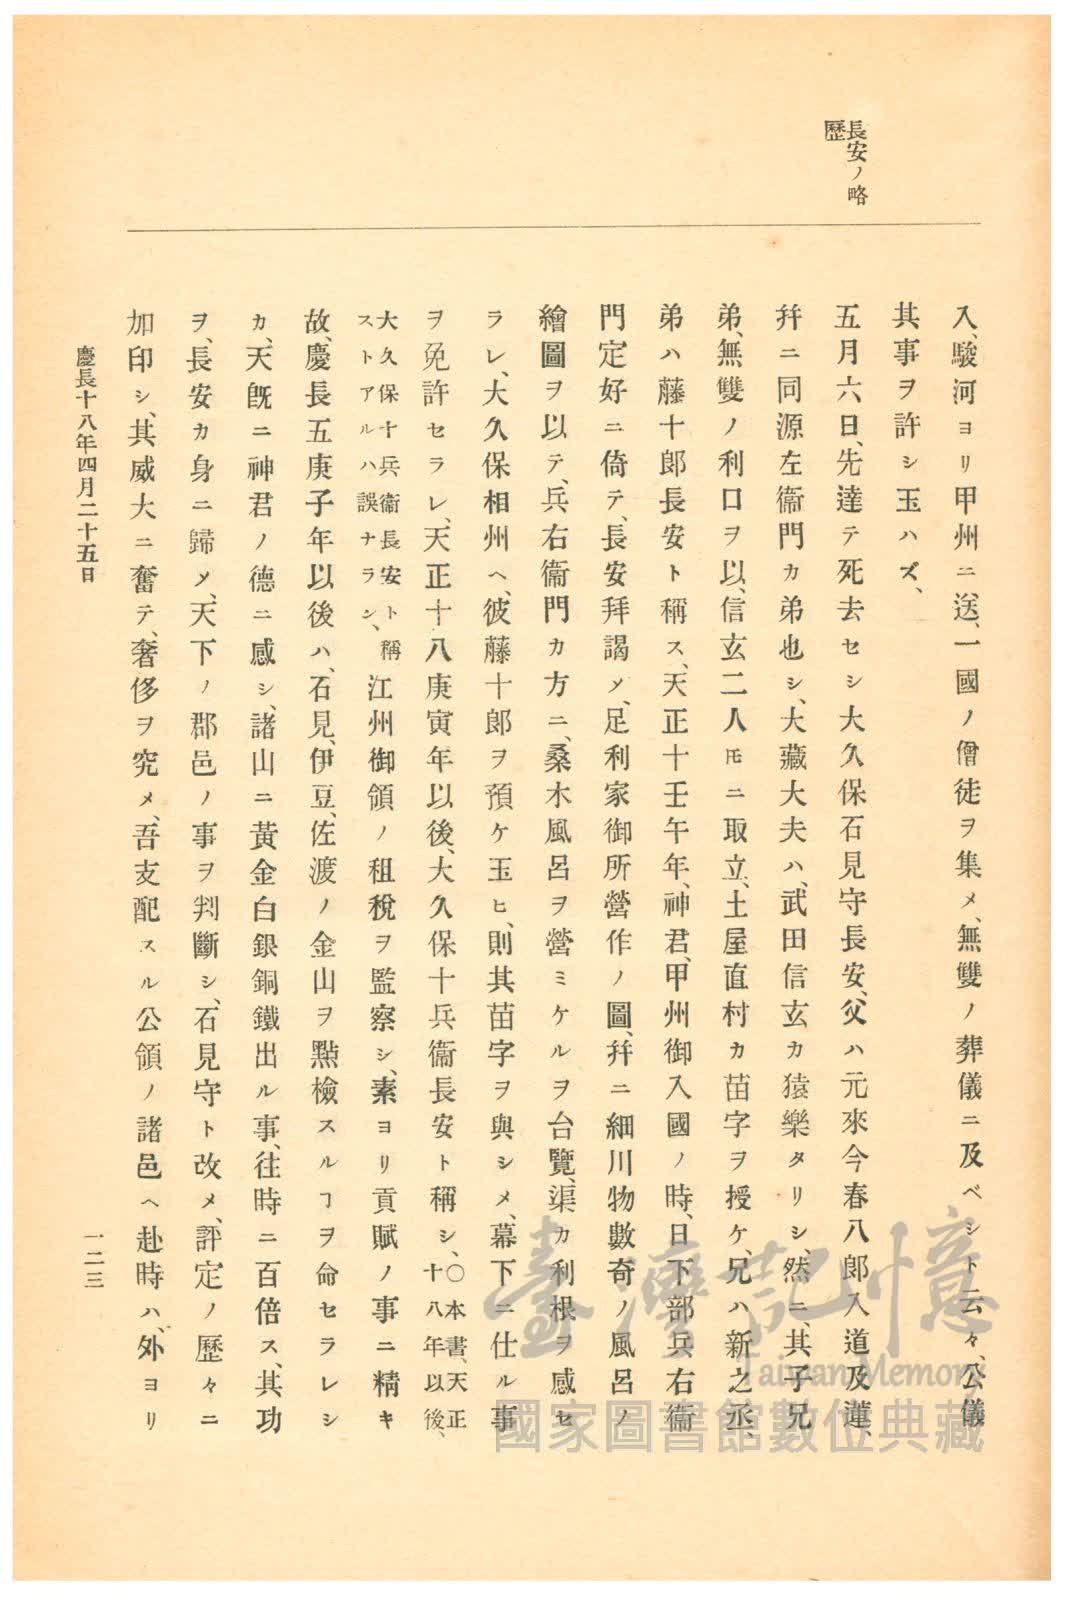 長安ノ略
歷
入、駿河ヨリ甲州ニ送、一國ノ僧徒ヲ集メ、無雙ノ葬儀ニ及ベシト云々、公儀
其事ヲ許シ玉ハズ、
五月六日、先達テ死去セシ大久保石見守長安、父ハ元來今春八郎入道及蓮、
幷ニ同源左衞門カ弟也シ、大藏大夫ハ、武田信玄カ猿樂タリシ、然ニ、其子兄
弟、無雙ノ利口ヲ以、信玄二人ㇳモニ取立、土屋直村カ苗字ヲ授ケ、兄ハ新之丞、
弟ハ藤十郎長安ト稱ス、天正十壬午年、神君、甲州御入國ノ時、日下部兵右衞
門定好ニ倚テ、長安拜謁ノ、足利家御所營作ノ圖、幷ニ細川物數奇ノ風呂ノ
繪圖ヲ以テ、兵右衞門カ方ニ、桑木風呂ヲ營ミケルヲ台覽、渠カ利根ヲ感セ
ラレ、大久保相州ヘ、彼藤十郎ヲ預ケ玉ヒ、則其苗字ヲ與シメ、幕下ニ仕ル事
ヲ免許セラレ、天正十八庚寅年以後、大久保十兵衞長安ト稱シ、〇本書、天正
十八年以後、
大久保十兵衞長安ト稱
ストアルハ誤ナラン、江州御領ノ租稅ヲ監察シ、素ヨリ貢賦ノ事ニ精キ
故、慶長五庚子年以後ハ、石見、伊豆、佐渡ノ金山ヲ點檢スルヿヲ命セラレシ
カ、天旣ニ神君ノ德ニ感シ、諸山ニ黃金白銀銅鐵出ル事、往時ニ百倍ス、其功
ヲ、長安カ身ニ歸ノ、天下ノ郡邑ノ事ヲ判斷シ、石見守ト改メ、評定ノ歷々ニ
加印シ、其威大ニ奮テ、奢侈ヲ究メ、吾支配スル公領ノ諸邑ヘ赴時ハ、外ヨリ
慶長十八年四月二十五日
一二三
臺灣記憶
Taiwan Memory
國家圖書館數位典藏